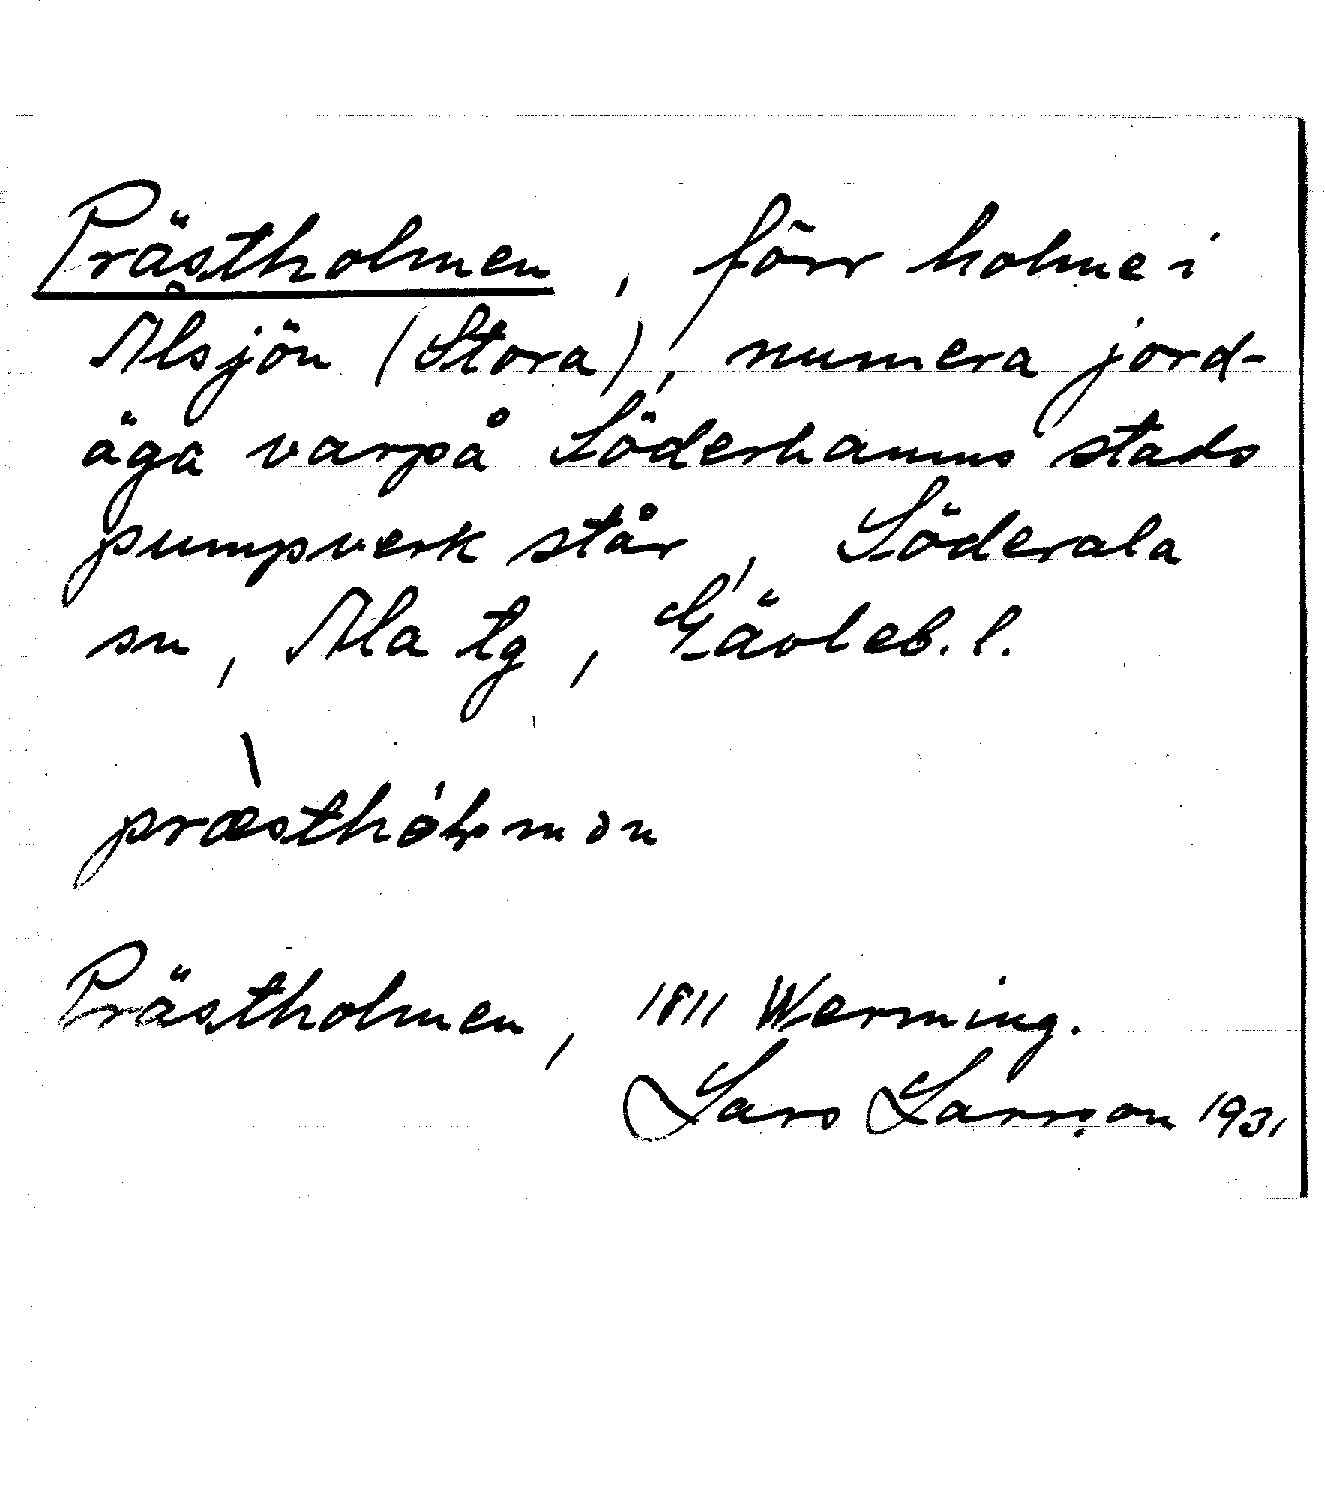 Prästholmen, förr holme i
Ålsjön (Stora), numera jord-
äga varpå Söderhamns stads
pumpverk står, Söderala
sn, Ala tg, Gävleb. l.
præsthólmən
Prästholmen, 1811 Werming.
Lars Larsson 1931